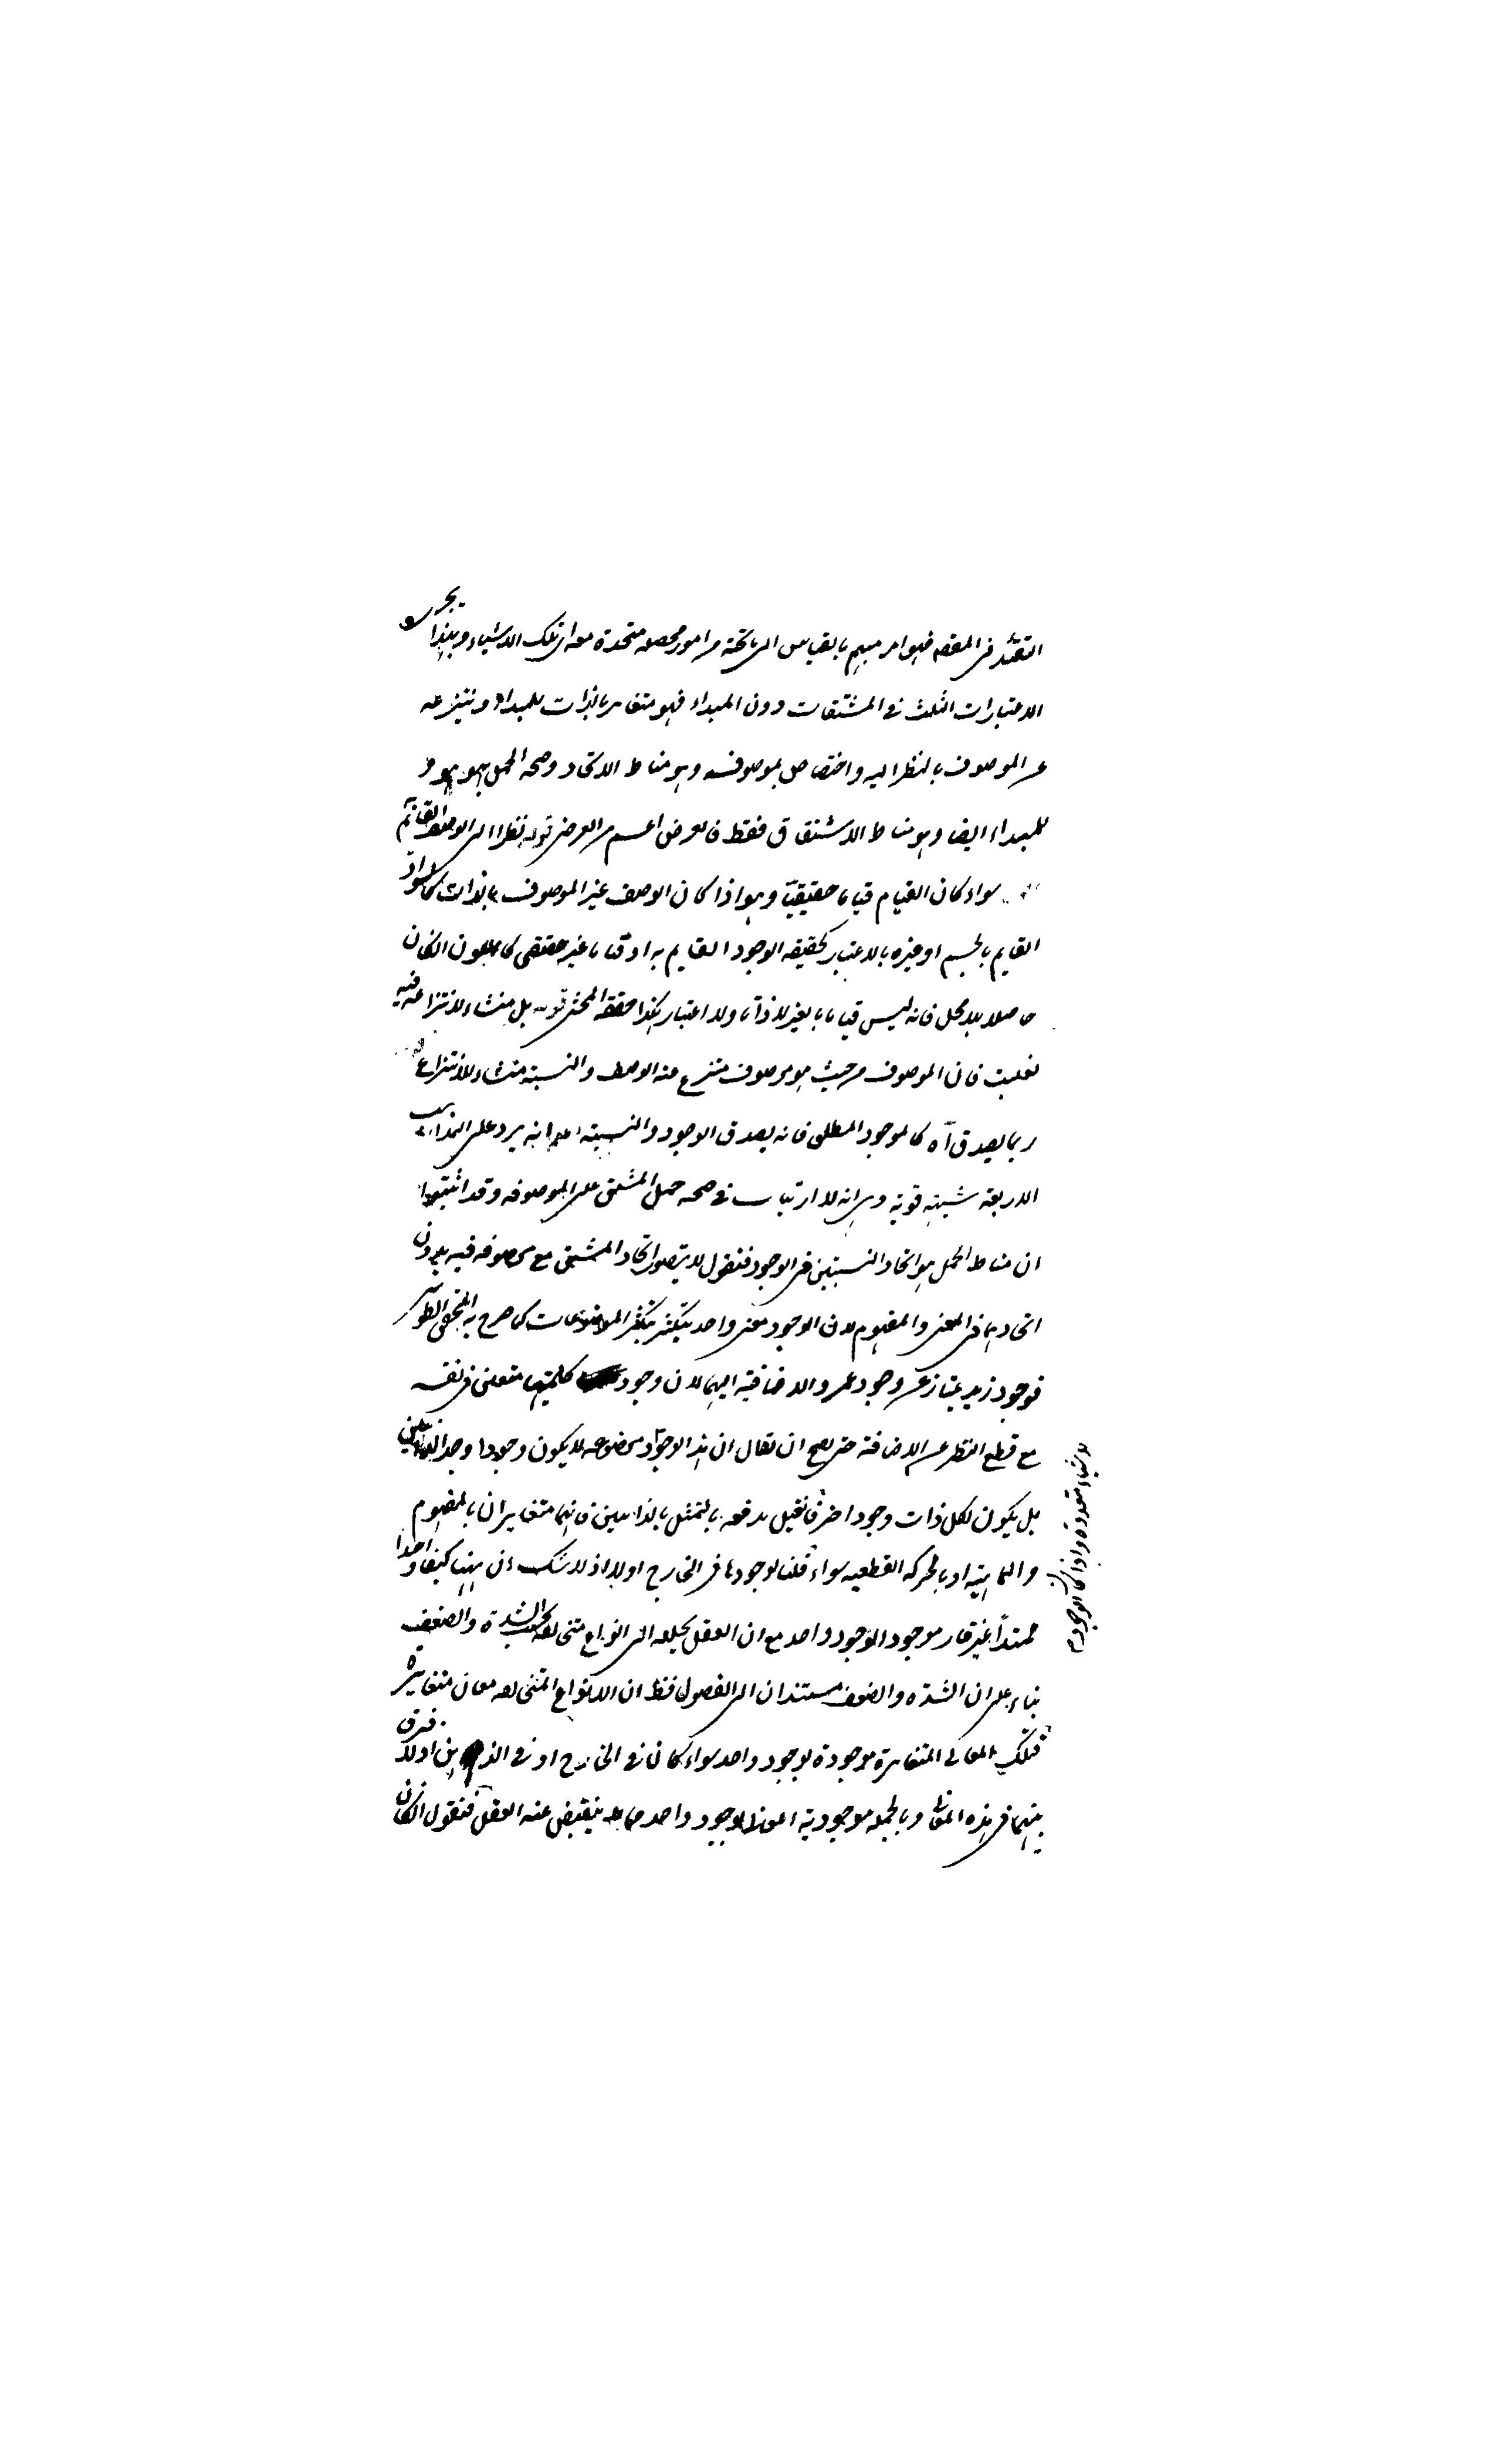 فى المعنى فهو امر مبهم بالقياس الى ما تحته من امور محصله متحدة معه اى تلك الاشياء وبهذا يجرى
الاعتبارات الثلث فى المشتقات دون المبداء فهو متغاير بالذات للمبداء وينتزعه
عن الموصوف بالنظر اليه واختصاص بموصوفه وهو مناط الاتحاد وصحه الحمل بهو هو و
للمبداء ايضا وهو مناط الاشتقاق فقط فالعرض اعم من العرضى قوله نظرا الى الوصف القائم
سواء كان القيام قياما حقيقيا وهو اذا كان الوصف غير الموصوف بالذات كالسواد
القايم بالجسم او غيره بالاعتبار كحقيقه الوجود القايم به او قياما غير حقيقى كاللون ان كان
حاصلا بلا محل فانه ليس قياما بالغير لا ذاتا ولا اعتبارا هكذا حققه المحشى قوله بل منشاء لانتزاعه فيه
فان الموصوف من حيث هو موصوف منتزع عنه الوصف والنسبة منشاء للانتزاع
ربما يصدق آه كالموجود المطلق فانه يصدق الوجود والنسبته اعلم انه يرد على المذاهب
الاربعة شبهة قوية وهى انه لا ارتياب فى صحه حمل المشتق على الموصوفه وقد اثبتوا
ان مناط الحمل هو اتحاد النسبتين فى الوجود فنقول لا يتصور اتحاد المشتق مع موصوفه فيه بدون
اتحادهما فى المعنى والمفهوم لان الوجود معنى واحد يتكثر بتكثر الموضوعات كما صرح به المحقق الطوسى
فوجود زيد يمتاز عن وجود عمرو الاضافية اليهما لان وجود كليهما متعلق فى نفسه
مع قطع النظر عن الاضافة حتى يصح ان يقال ان هذا الوجود موضوعه لا يكون وجودا واحدا
بل يكون لكل ذات وجود اخر فان قيل يدفعه بالتمثل بالذاتيين فانهما متغايران بالمفهوم
والماهية او بالحركه القطعيه سواء قلنا بوجودها فى الخارج او لا اذ لا شك ان ههنا كيفا واحدا
ممتدا غير قار موجود الوجود واحد مع ان العقل يحلله الى انواع متخالفه بحسب الشدة والضعف
بناء على ان الشدة والضعف مستندان الى الفصول فظ ان الانواع المتخالفه معان متغايرة
فتلك المعانى المتغايرة موجودة بوجود واحد سواء كانا فى الخارج او فى الذهن او لا فرق
بينهما فى هذه المعانى وبالجمله موجودية امور بوجود واحد مما ينقبض عنه العقل فنقول ان كان
لاشياء متعددة واذا كان الوجود